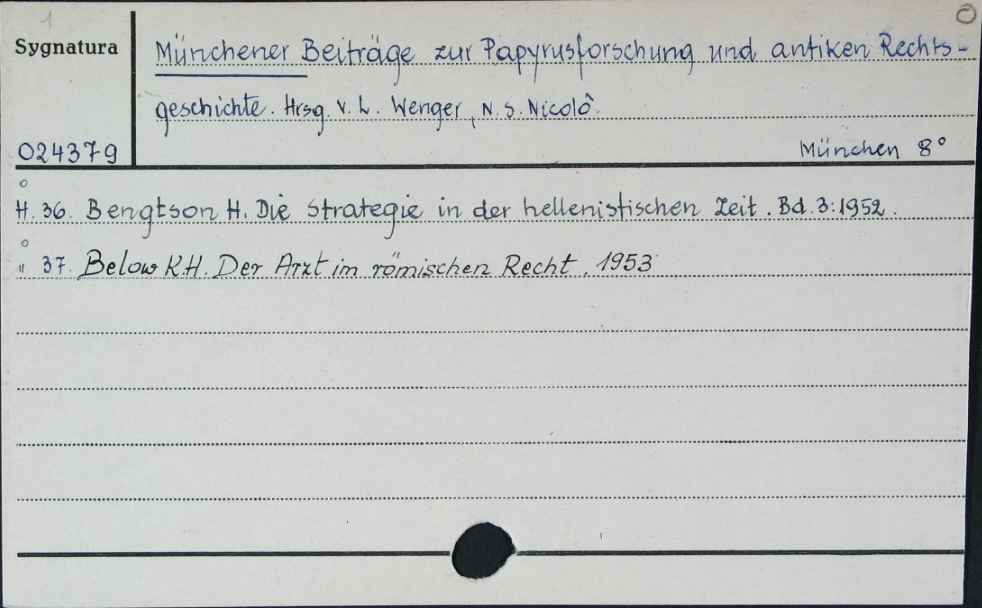 1
O
Sygnatura
Münchener Beiträge zur Papyrusforschung und antiken Rechts-
geschichte. Hrsg. v. L. Wenger, N. S. Nicolô.
024379
München 8°
H. 36. Bengtson H. Die Strategie in der hellenistischen Zeit. Bd. 3: 1952.
" 37. Below K.H. Der Arzt im römischen Recht. 1953